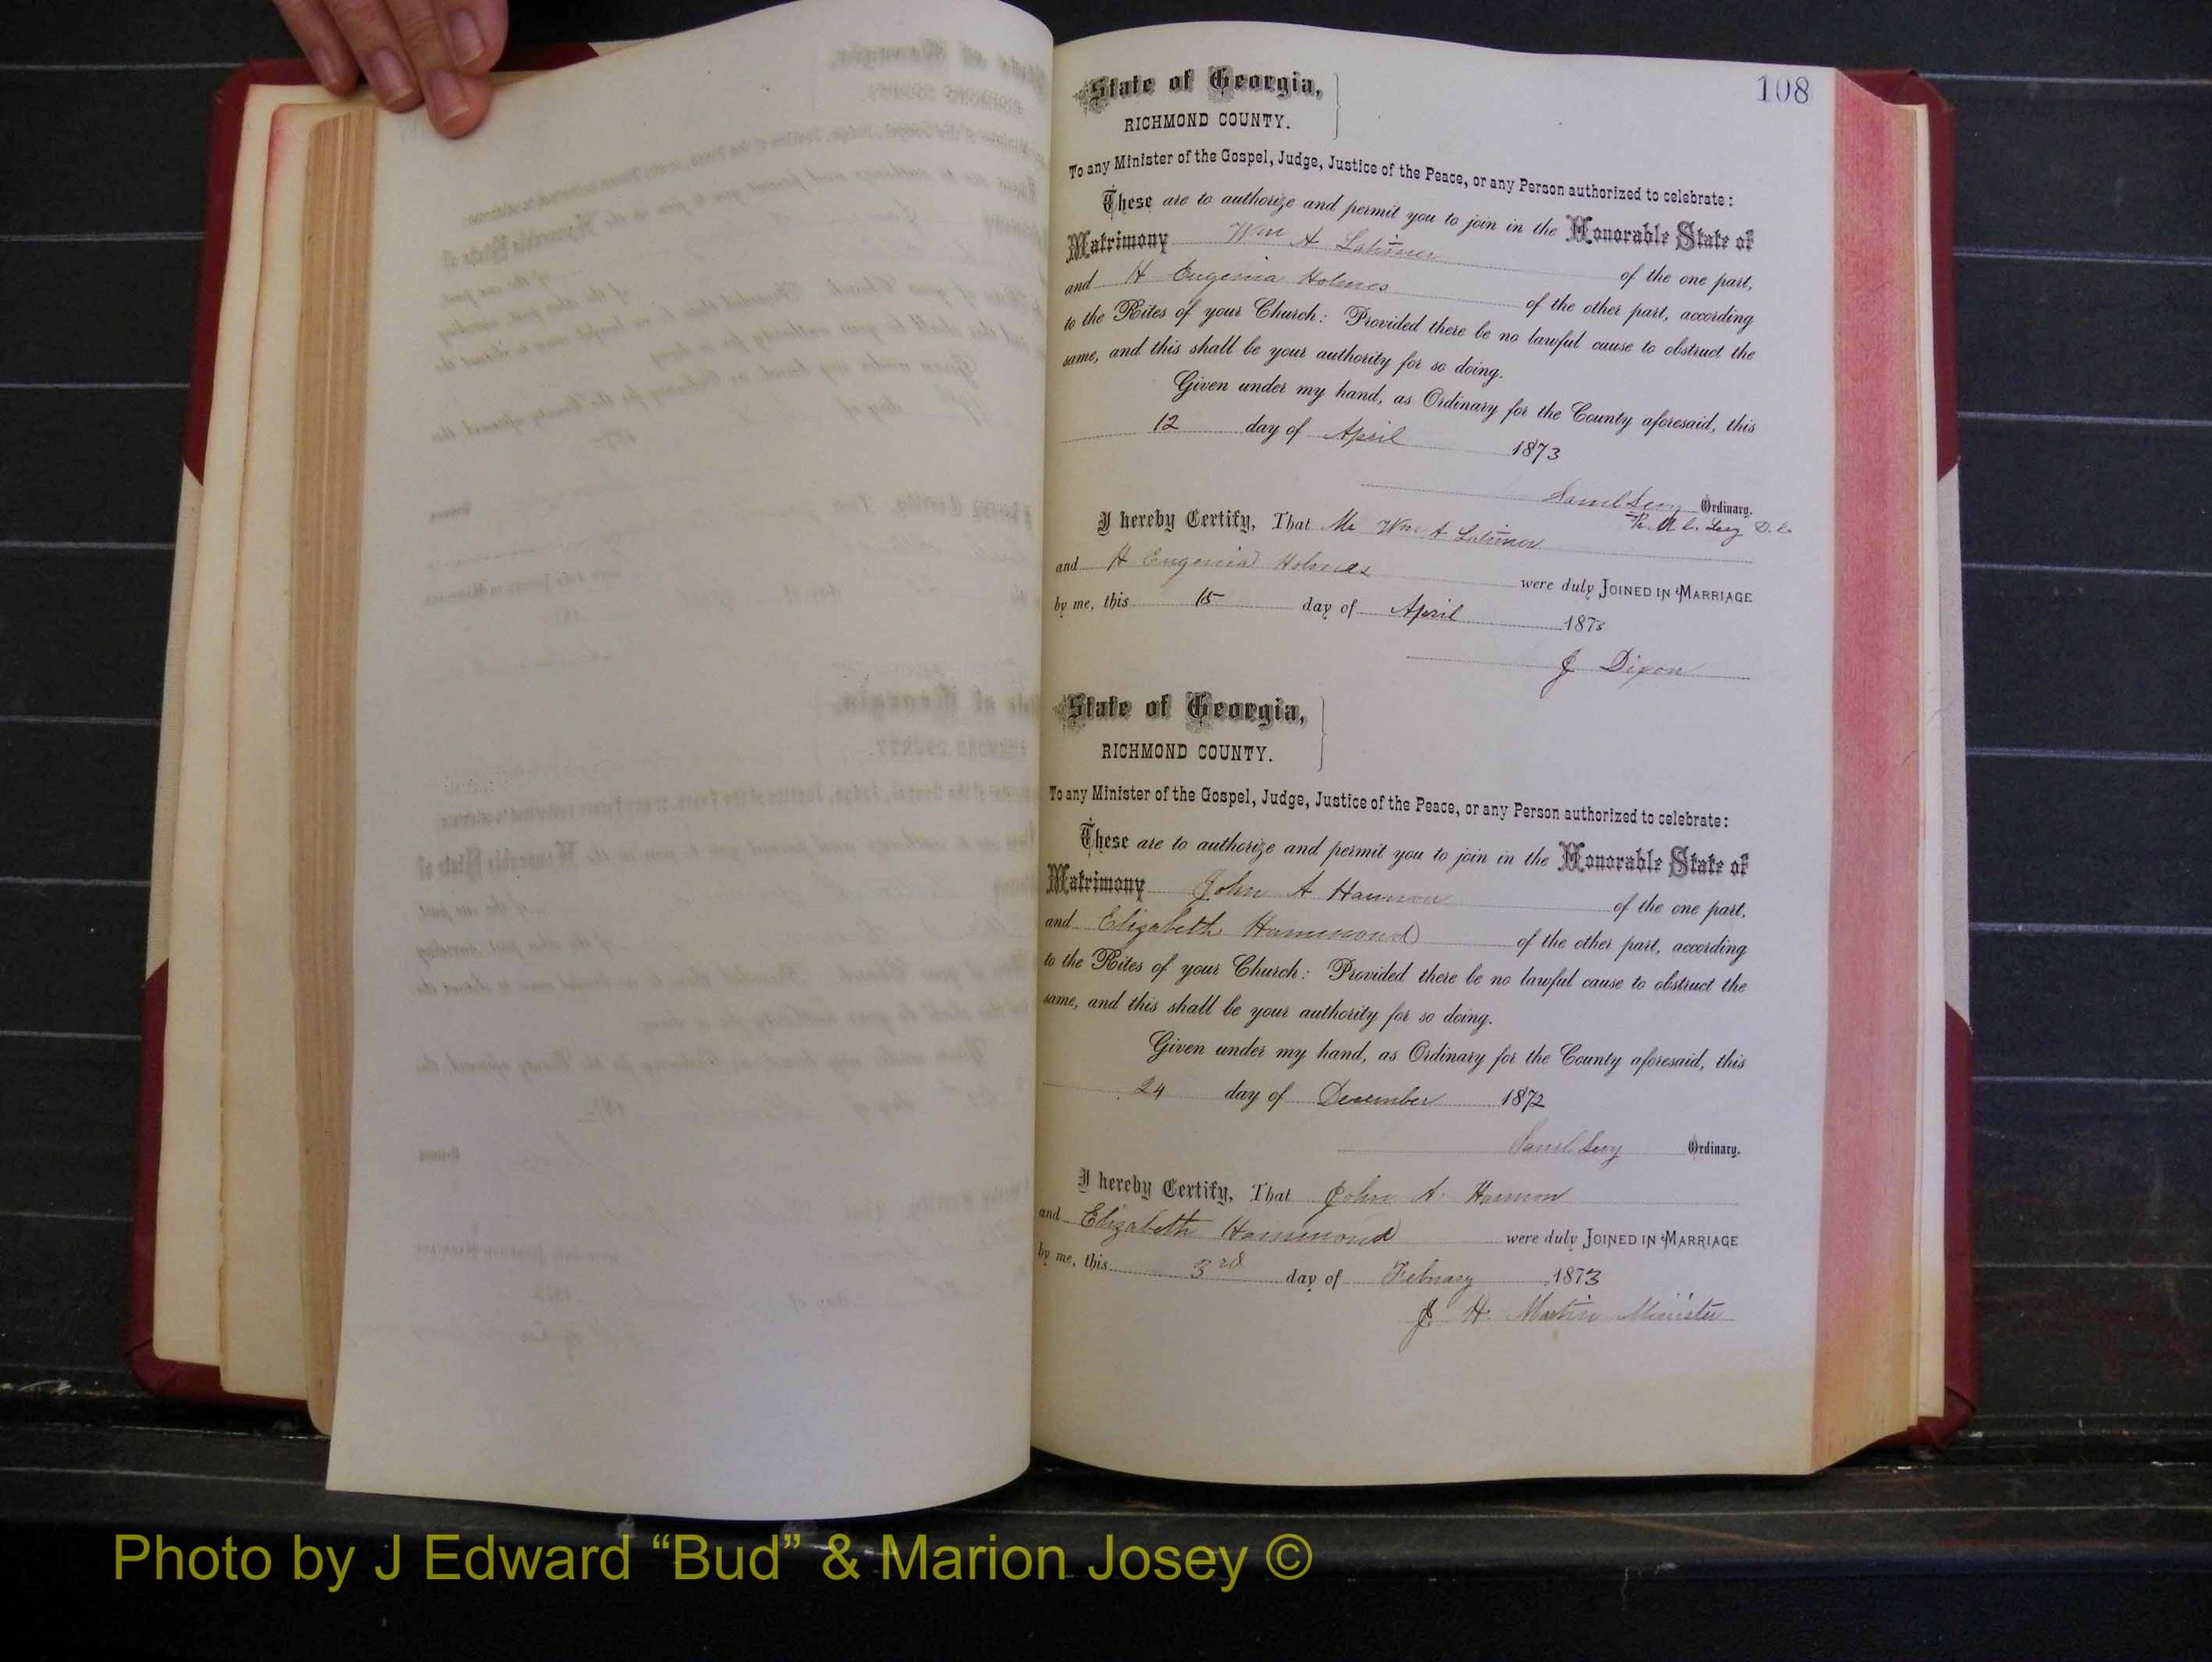 108
State of Georgia,
RICHMOND COUNTY.
To any Minister of the Gospel, Judge, Justice of the Peace, or any Person authorized to celebrate:
These are to authorize and permit you to join in the Honorable State of
Matrimony Wm A Latimer of the one part,
and H Eugenia Holmes of the other part, according
to the Rites of your Church: Provided there be no lawful cause to obstruct the
same, and this shall be your authority for so doing.
Given under my hand, as Ordinary for the County aforesaid, this
12 day of April 1873
Saml Levy Ordinary.
Levy D. C.
I hereby Certify, That Mr Wm A Latimer
and H Eugenia Holmes were duly JOINED IN MARRIAGE
by me, this 15 day of April 1873
J Dixon
State of Georgia,
RICHMOND COUNTY.
To any Minister of the Gospel, Judge, Justice of the Peace, or any Person authorized to celebrate:
These are to authorize and permit you to join in the Honorable State of
Matrimony John A Harmon of the one part,
and Elizabeth Hammond of the other part, according
to the Rites of your Church: Provided there be no lawful cause to obstruct the
same, and this shall be your authority for so doing.
Given under my hand, as Ordinary for the County aforesaid, this
24 day of December 1872
Saml Levy Ordinary.
I hereby Certify, That John A. Harmon
and Elizabeth Hammond were duly JOINED IN MARRIAGE
by me, this 3rd day of Febuary 1873
J H. Martin Minister
Photo by J Edward “Bud” & Marion Josey ©